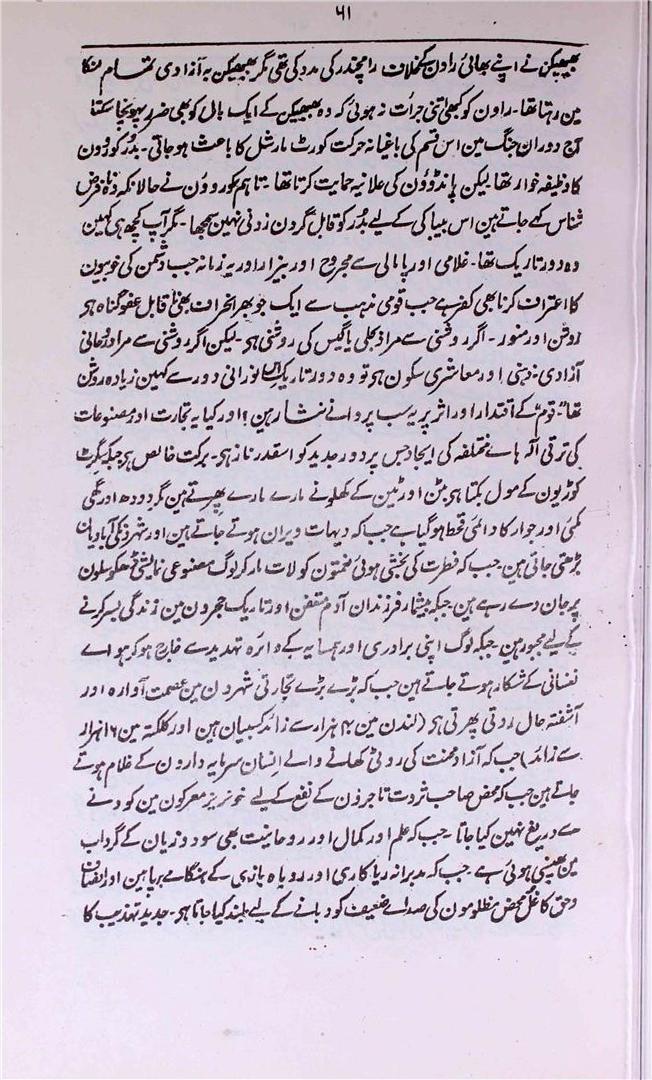 ۶۱
بھبھیکن نے اپنے بھائی راون کے خلاف رامچندر کی مدد کی تھی مگر بھبھیکن بہ آزادی تمام لنکا
مین رہتا تھا۔ راون کو کبھی اتنی جرأت نہ ہوئی کہ وہ بھبھیکن کے ایک بال کو بھی ضرر پہونچا سکتا
آج دوران جنگ مین اس قسم کی باغیانہ حرکت کورٹ مارشل کا باعث ہو جاتی۔ بدُر کوروُن
کا وظیفہ خوار تھا لیکن پانڈوؤن کی علانیہ حمایت کرتا تھا۔ تاہم کوروؤن نے حالانکہ وہ نا فرض
شناس کہے جاتے ہین اس بیباکی کے لیے بدُر کو قابل گردن زدنی نہین سمجھا۔ مگر آپ کچھ ہی کہین
وہ دور تاریک تھا۔ غلامی اور پامالی سے مجروح اور بیزار اور یہ زمانہ جب دشمن کی خوبیون
کا اعتراف کرنا بھی کفر ہے جب قومی مذہب سے ایک جَو بھر انحراف بھی نا قابل عفو گناہ ہو
روشن اور منور۔ اگر روشنی سے مراد بجلی یا گیس کی روشنی ہو۔ لیکن اگر روشنی سے مراد روحانی
آزادی۔ ذہنی اور معاشری سکون ہو تو وہ دور تاریک اس نورانی دور سے کہین زیادہ روشن
تھا۔ "قوم" کے اقتدار اور اثر پر یہ سب پروانے نثار ہین؟ اور کیا یہ تجارت اور مصنوعات
کی ترقی آلہ ہاے مختلفہ کی ایجاد جس پر دور جدید کو اسقدر ناز ہو۔ برکت خالص ہو جبکہ سگرٹ
کوڑیون کے مول بکتا ہو بٹن اور ٹین کے کھلونے مارے مارے پھرتے ہین مگر دودھ اور گھی
مکئی اور جوار کا دائمی قحط ہو گیا ہے جب کہ دیہات ویران ہوتے جاتے ہین اور شہرونکی آبادیان
بڑھتی جاتی ہین۔ جب کہ فطرت کی بخشی ہوئی نعمتون کو لات مار کر لوگ مصنوعی نمایشی ڈھکوسلون
پر جان دے رہے ہین جبکہ بیشمار فرزندان آدم متعفن اور تاریک حجرون مین زندگی بسر کرنے
کے لیے مجبور ہین۔ جبکہ لوگ اپنی برادری اور ہمسایہ کے دائرہ تہدید سے خارج ہو کر ہواے
نفسانی کے شکار ہوتے جاتے ہین جب کہ بڑے بڑے تجارتی شہرون مین عصمت آوارہ اور
آشفتہ حال روتی پھرتی ہو (لندن مین ۴۰ ہزار سے زائد کسبیان ہین اور کلکتہ مین ۱۶ ہزار
سے زائد) جب کہ آزاد محنت کی روٹی کھانے والے انسان سرمایہ دارون کے غلام ہوتے
جاتے ہین جب کہ محض صاحب ثروت تاجرون کے نفع کے لیے خونریز معرکون مین کودنے
سے دریغ نہین کیا جاتا۔ جب کہ علم اور کمال اور روحانیت بھی سود و زیان کے گرداب
مین پھنسی ہوئی ہے جب کہ مدبرانہ ریاکاری اور روباہ بازی کے ہنگامے برپا ہین اور انصاف
و حق کا غُل محض مظلومون کی صداے ضعیف کو دبانے کے لیے بلند کیا جاتا ہو۔ جدید تہذیب کا